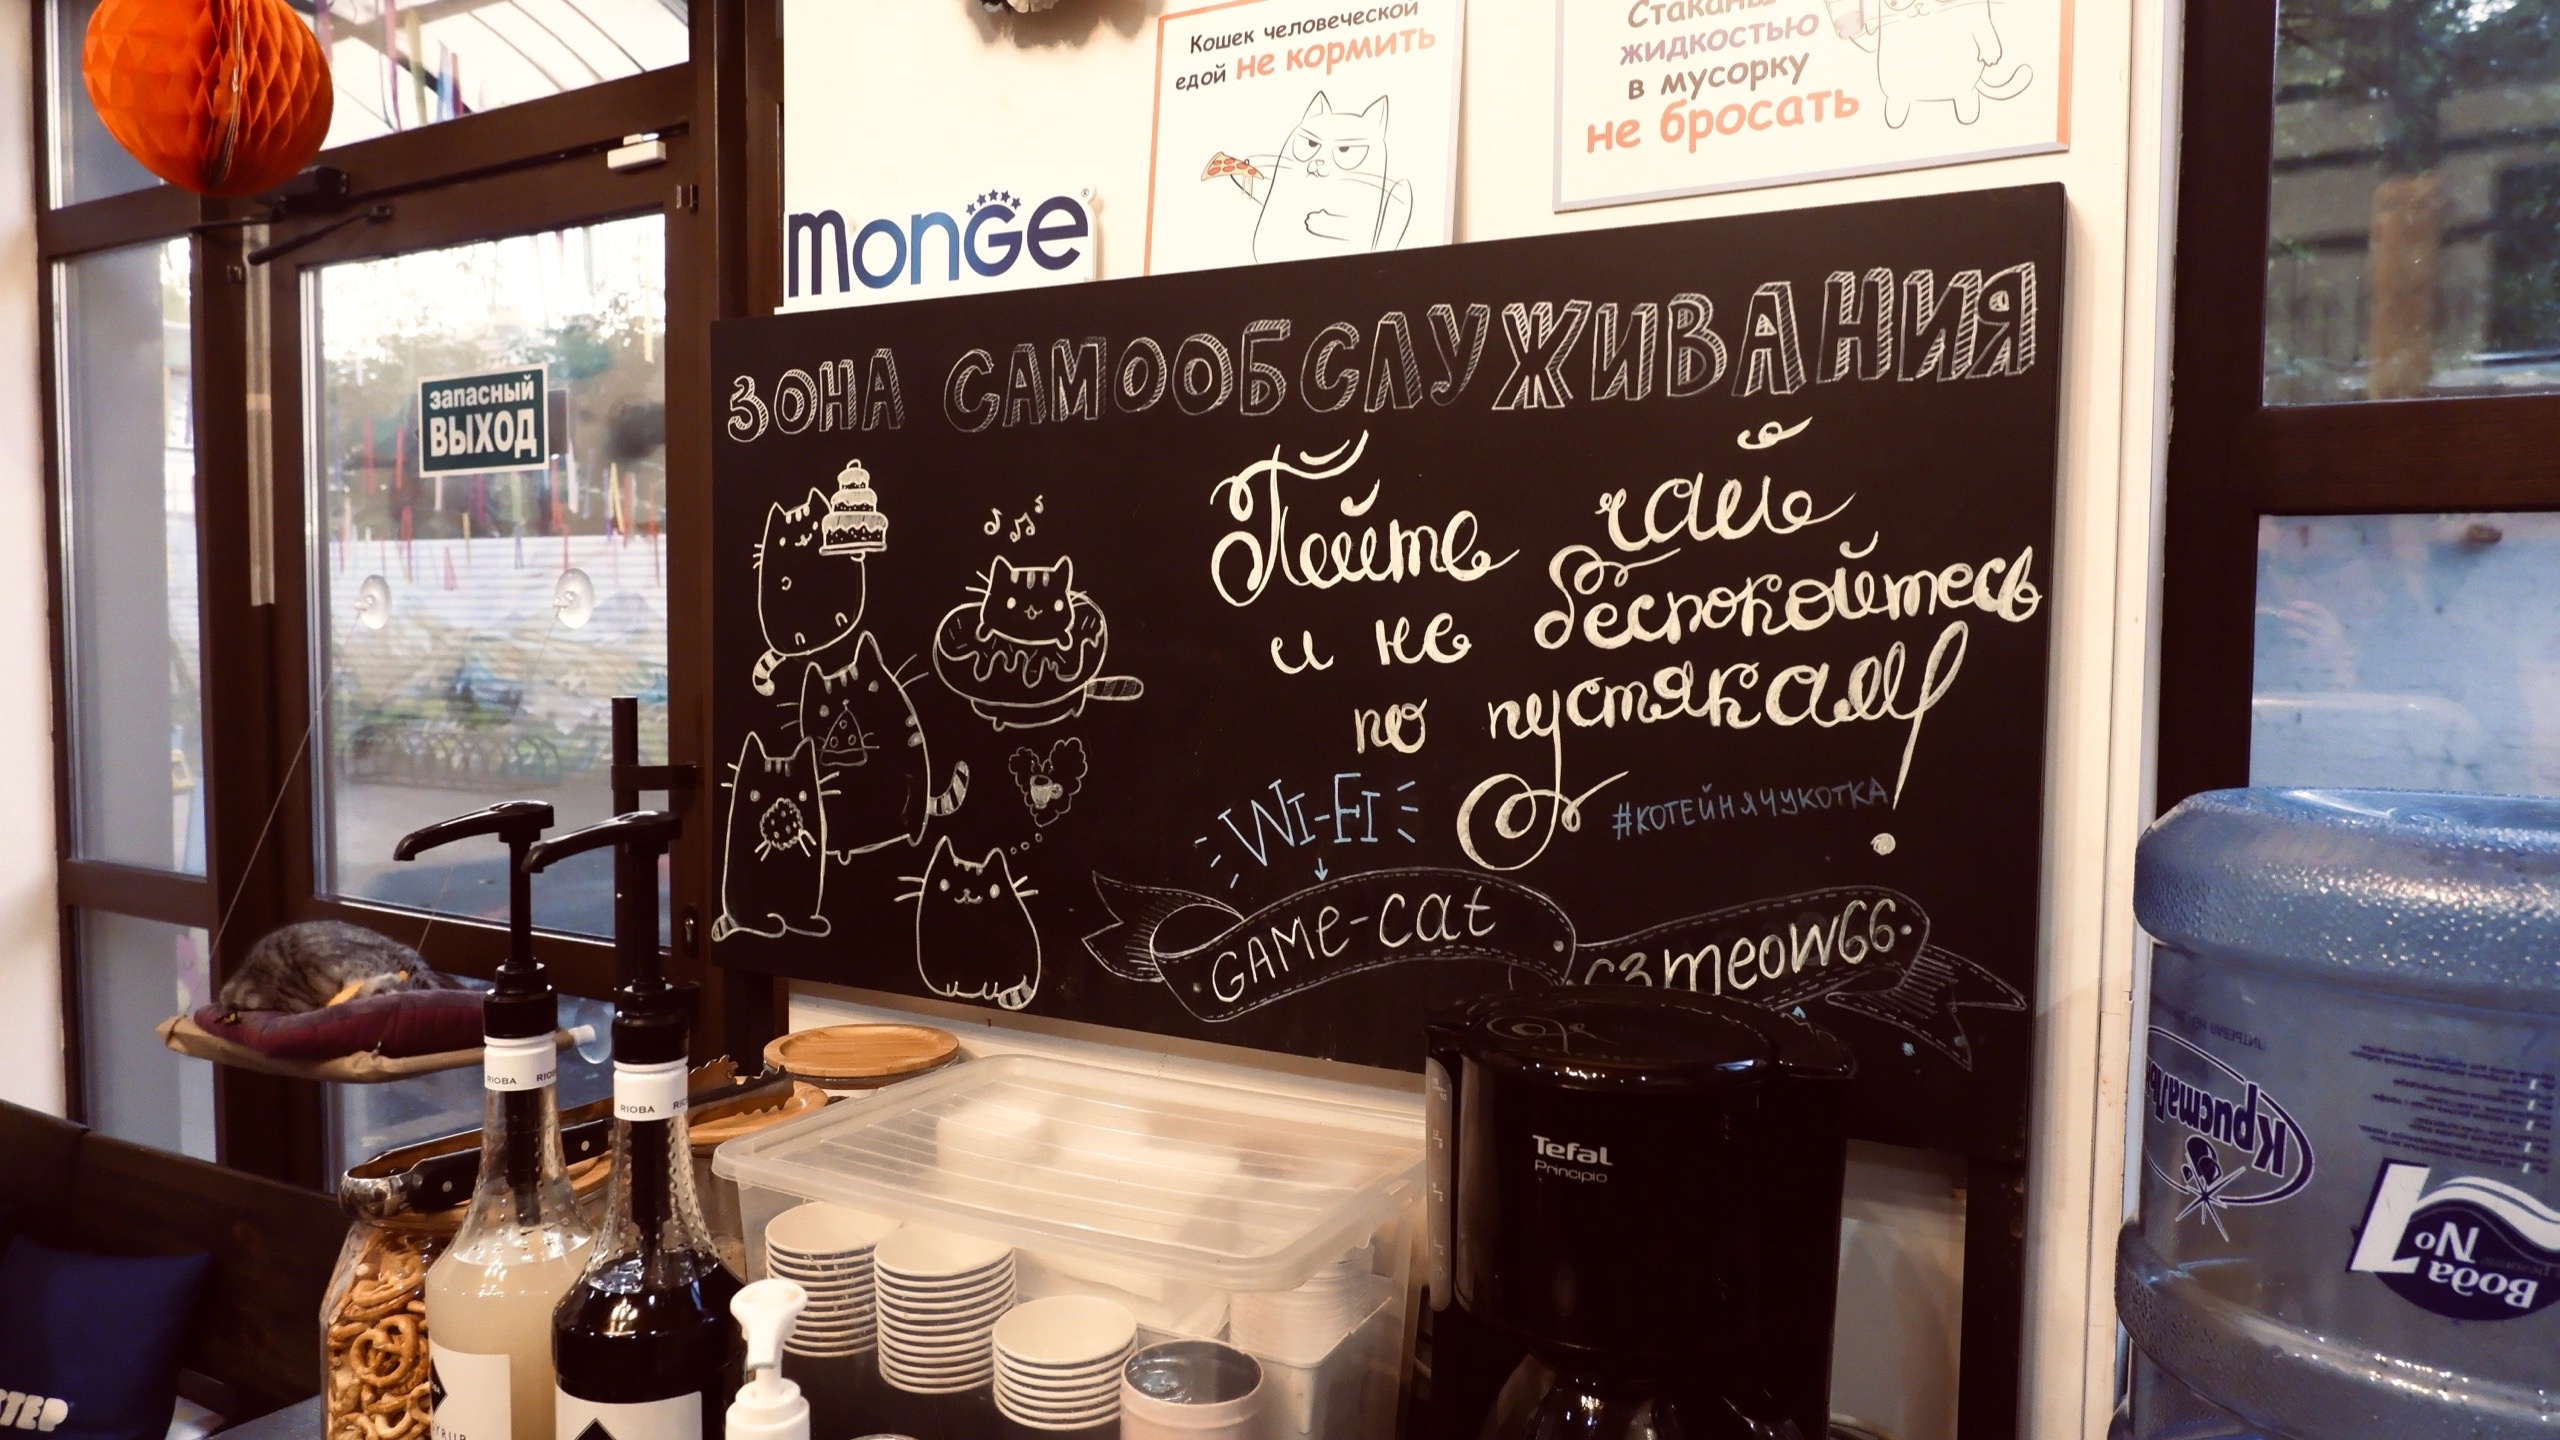 Кошек человеческой
едой не кормить
жидкостью
в мусорку
не бросать
monge
запасный
ВЫХОД
ЗОНА САМООБСЛУЖИВАНИЯ
Пейте чай
и не беспокойтесь
по пустякам!
WI-FI
#КОТЕЙНЯЧУКОТКА
GAME-cat
c3meow66
RIOBA
RIOBA
Tefal
Principio
Вода
№1